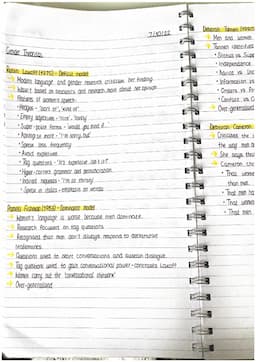 7/10/22
Gender Theories
Robin Lakoff (1975) - Deficit model
→ Modern language and gender research criticism her finding
→ Wasn't based on research and remark more about her opinion
→ Features of women's speech
• Hedges - 'sort of', 'kind of'
• Empty adjectives - 'nice', 'lovely'
• Super-polite forms - 'would you mind if...'
• Apologise more - 'I'm sorry but'
• Speak less frequently
• Avoid expletives
• Tag questions - 'It's expensive isn't it?'
• Hyper-correct grammar and pronunciation
• Indirect requests - 'I'm so thirsty'
• Speak in italics - emphasis on words
Pamela Fishman (1983) - Dominance model
→ Women's language is worse because men dominate
→ Research focused on tag questions
→ Recognised that men don't always respond to declarative
statements
→ Questions used to start conversations and sustain dialogue
→ Tag questions used to gain conversational power - contrasts Lakoff
→ Women carry out the 'conversational shitwork'
→ Over-generalised
Deborah Tannen
→ Men and women
→ Tannen identified
• Status vs Supp
• Independence
• Advice vs Un
• Information vs
• Orders vs Pr
• Conflict vs C
→ Over-generalise
Deborah Cameron
→ Criticises the
the way men a
→ She says tha
→ Cameron cha
• That wome
than men.
• That men ha
• That wome
• That men